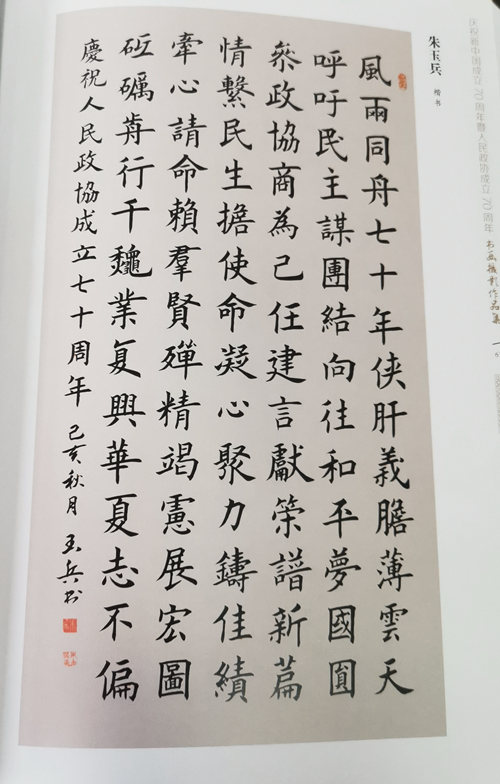 庆祝新中国成立70周年暨人民政协成立70周年 书画摄影作品集
朱玉兵 楷书
風雨同舟七十年侠肝義膽薄雲天
呼吁民主謀團結向往和平夢國圓
叅政協商為己任建言獻策譜新篇
情繫民生擔使命凝心聚力鑄佳績
牽心請命賴羣賢殫精竭慮展宏圖
砥礪歬行千龝業复興華夏志不偏
慶祝人民政協成立七十周年 己亥秋月 玉兵书